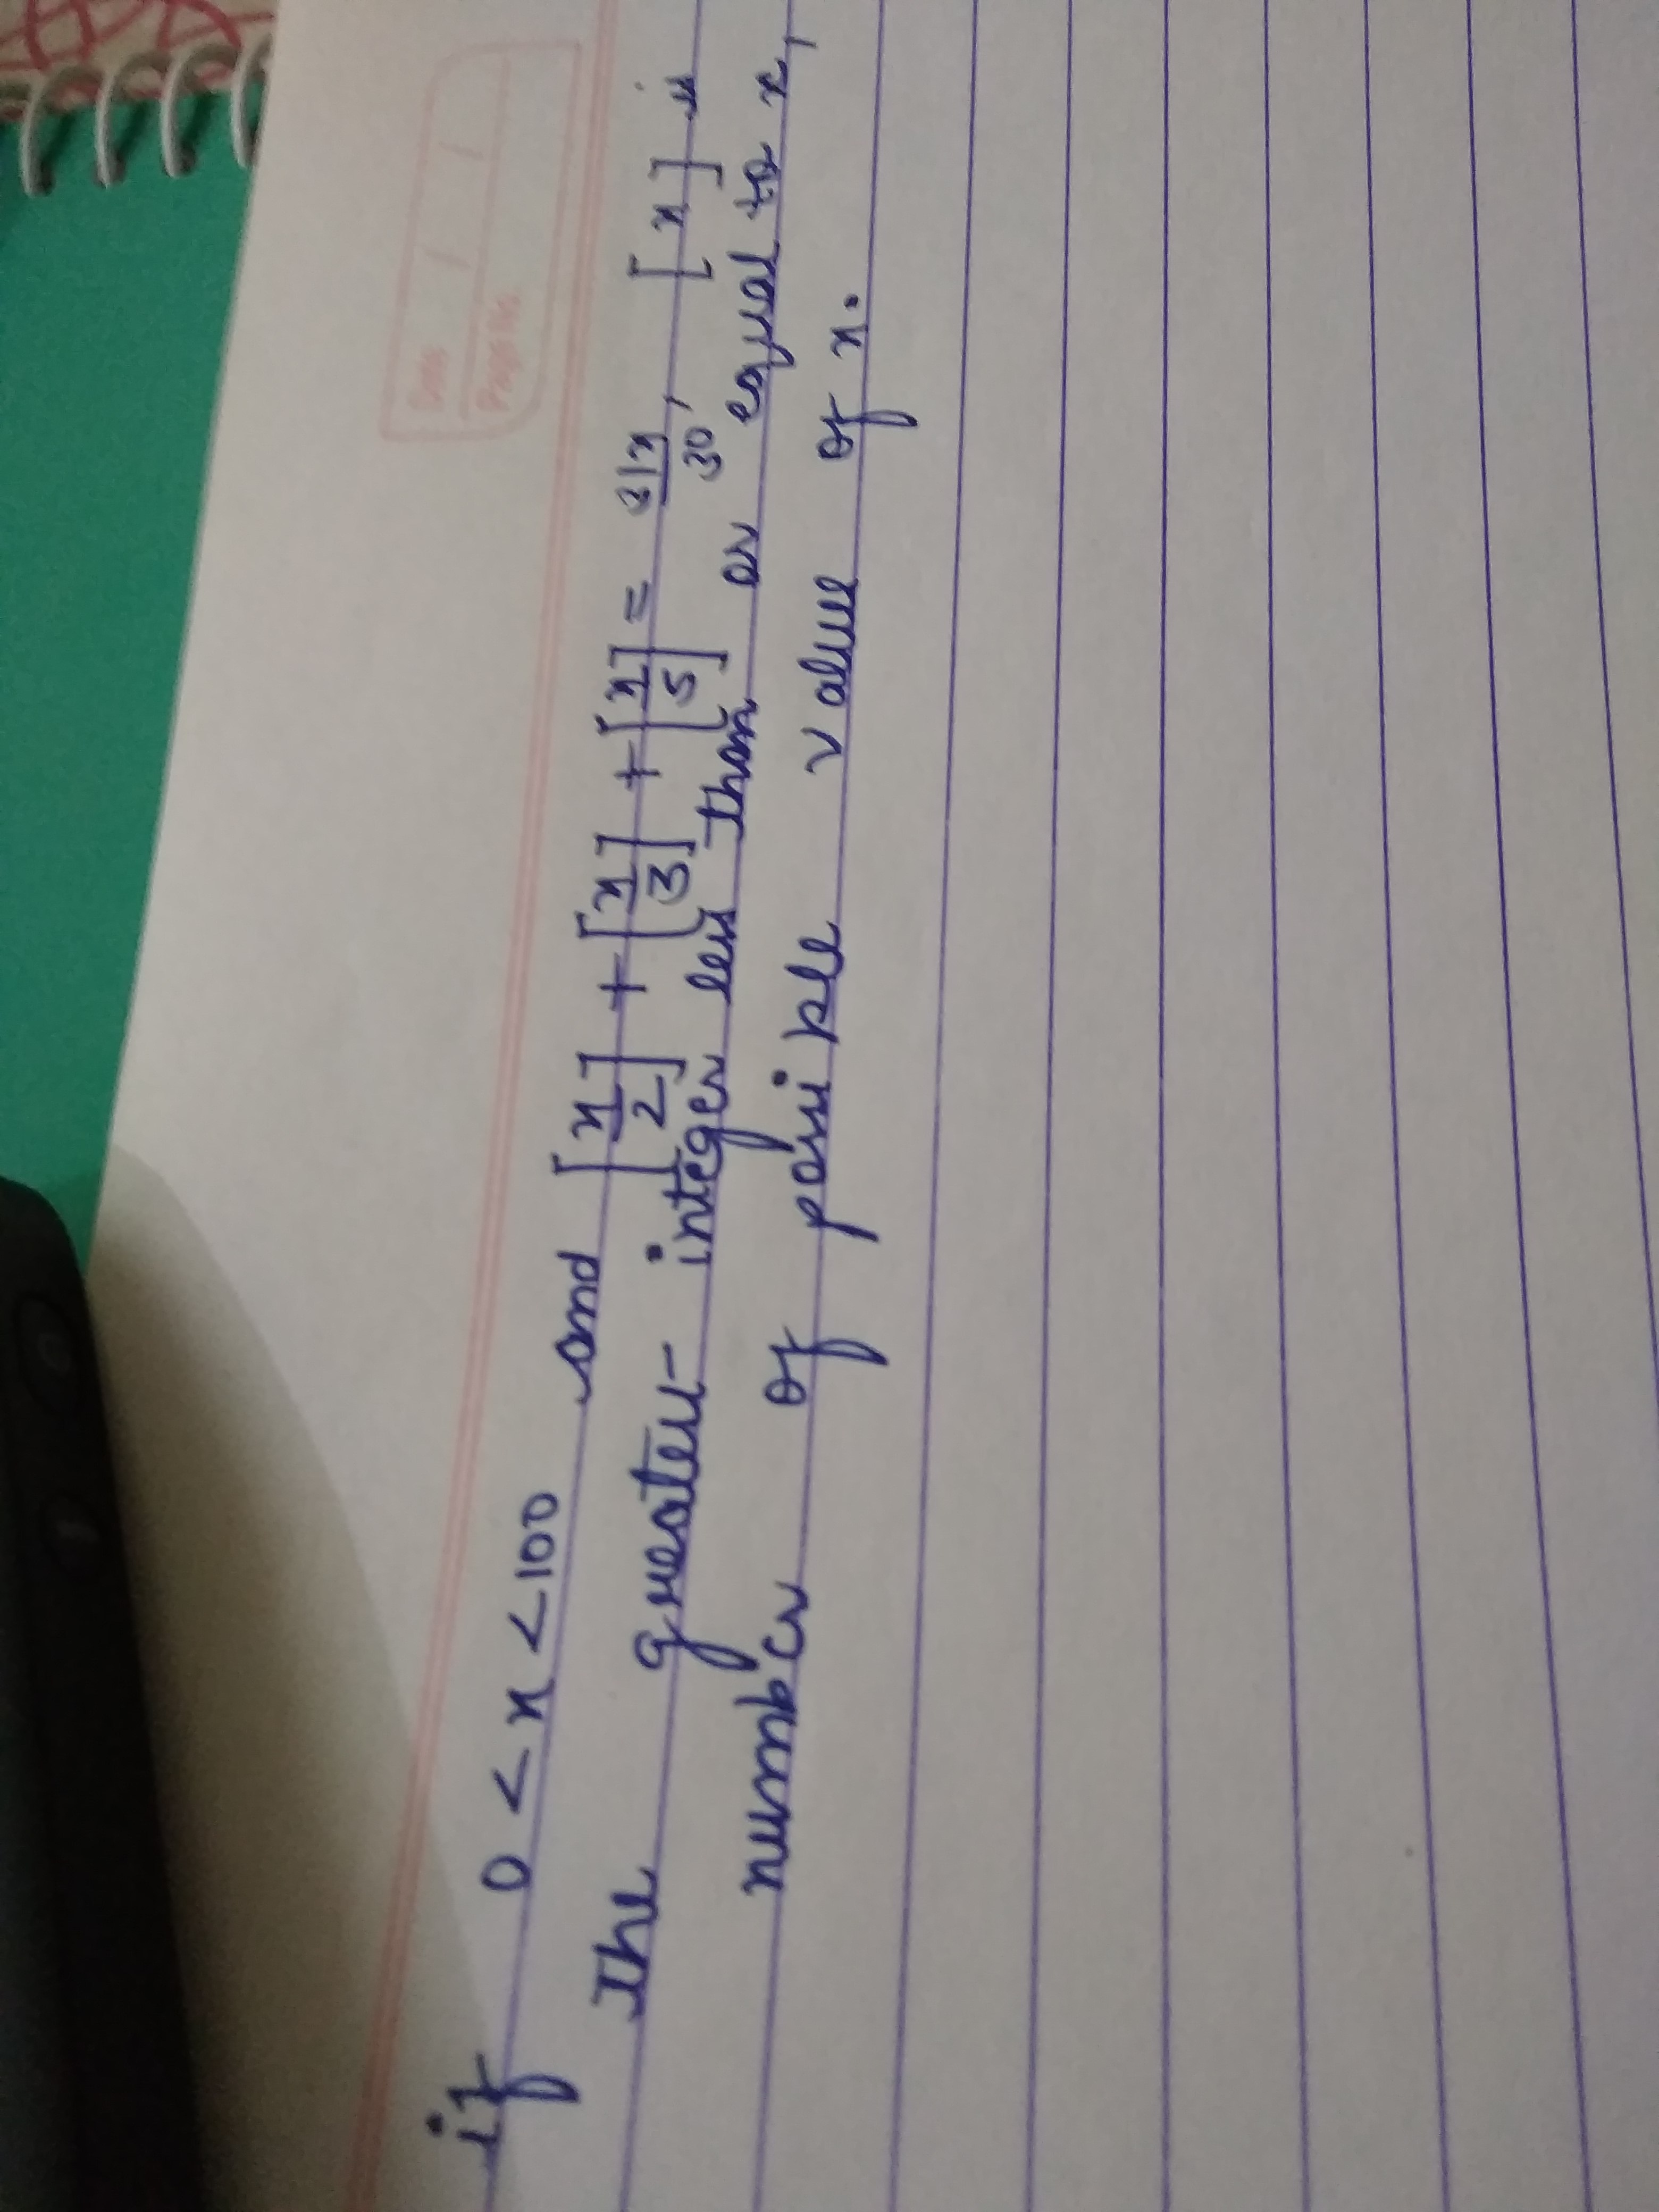 Date / /
Page No.
if 0 < x < 100 and [x/2] + [x/3] + [x/5] = 31x/30, [x] is
the greatest integer less than or equal to x,
number of possible value of x.